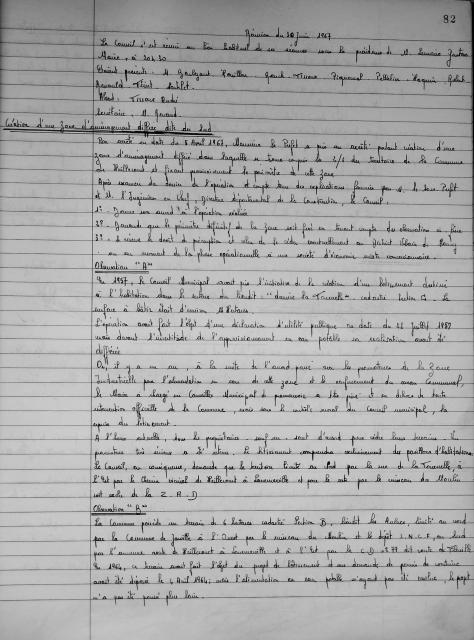 82
Réunion du 20 Juin 1967
Le Conseil s'est réuni au lieu habituel de ses séances sous la présidence de M. Gaston
Maire, à 20 h 30
Étaient présents : M. Pelletier
Absent : Tissour André
Secrétaire M.
Création d'une Zone d'aménagement différé dite du Sud
Par arrêté en date du 5 Avril 1967, Monsieur le Préfet a pris un arrêté portant création d'une
zone d'aménagement différé dans laquelle se trouve compris les 2/3 du territoire de la Commune
de Heillecourt et fixant provisoirement le périmètre de cette zone
Après examen du dossier de l'opération et compte tenu des explications fournies par M. le Sous Préfet
et M. l'Ingénieur en Chef, Directeur départemental de la Construction, le Conseil :
1° - Donne son accord à l'opération
2° - Demande que le périmètre définitif de la zone soit fixé en tenant compte des observations ci
3° - le droit de préemption et celui de le céder éventuellement au District Urbain de Nancy
ou au moment de la phase opérationnelle à une société d'économie mixte concessionnaire.
Observation "A"
En 1957, le Conseil Municipal avait pris l'initiative de la création d'un lotissement destiné
à l'habitation dans le secteur du lieudit "derrière la Tournelle" cadastré Section C. La
surface à bâtir était d'environ hectares.
L'opération avait fait l'objet d'une déclaration d'utilité publique en date du Juillet 1957
mais devant l'incertitude de l'approvisionnement en eau potable sa réalisation avait été
différée
Or, il y a un an, à la suite de l'accord passé avec les promoteurs de la Zone
Industrielle pour l'alimentation en eau de cette zone et le renforcement du réseau Communal,
le Maire a chargé un Conseiller Municipal de promouvoir à titre privé et en dehors de toute
intervention officielle de la Commune, mais sous le contrôle moral du Conseil municipal, la
reprise du lotissement.
A l'heure actuelle, tous les propriétaires sauf un sont d'accord pour céder leurs terrains. Un
promoteur très sérieux a été retenu, le lotissement comprendra exclusivement des pavillons d'habitation.
Le Conseil, en conséquence, demande que le territoire limité au Nord par la rue de la Tournelle, à
l'Est par le Chemin vicinal de Heillecourt à Laneuveville et pour le reste par le ruisseau du Moulin
soit exclu de la Z.A.D
Observation "B"
La Commune possède un terrain de 6 hectares cadastré Section B, lieudit les limité au nord
par la Commune de Jarville à l'Ouest par le ruisseau du Moulin et le dépôt S.N.C.F, au Sud
par l'ancienne route de Heillecourt à Laneuveville et à l'Est par le C.D n° 71 dit route de
En 1964, ce terrain avait fait l'objet du projet de lotissement et une demande de permis de construire
avait été déposée le 4 Avril 1964 ; mais l'alimentation en eau potable n'ayant pas été résolue, le projet
n'a pas été poussé plus loin.